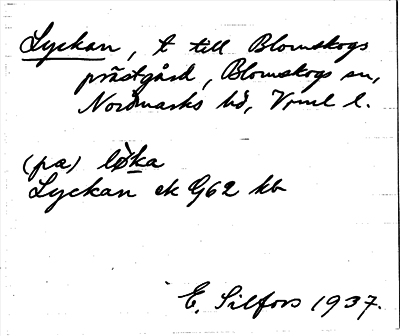 Lyckan, t till Blomskogs
prästgård, Blomskogs sn,
Nordmarks hd, Vrml l.
(pa) lø̀ka
Lyckan ek G62 kb
E. Silfors 1937.